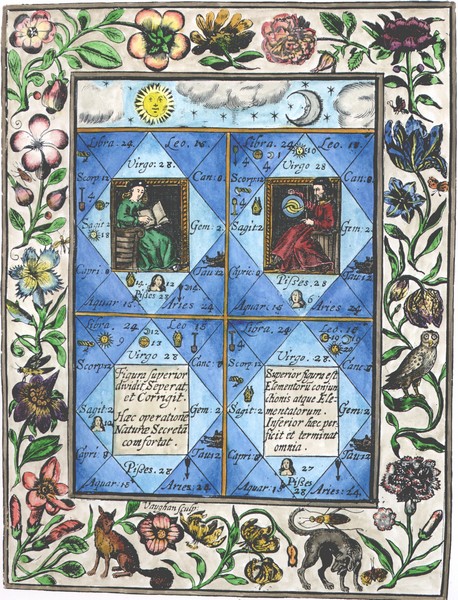 Libra. 24. Leo. 18.
Virgo: 28.
Scorp: 12 Can: 8
4
Sagit 2 Gem: 2
18
Capri: 8 Tau: 12
14 12
Pisces 28
Aquar: 15 Aries 24
Libra. 24. Leo. 18.
Virgo 28
Scorp: 12 Can: 8
4
Sagit: 2 Gem: 2
Capric: 8 Tau: 12
Pisses. 28
6
Aquar: 15 Aries 24
Libra. 24 Leo 18
9 12
Virgo 28
Scorp: 12 Canc: 8
Figura superior
dividit Seperat,
et Corrigit.
Hæc operatione
Naturæ Secreta
comfortat.
Sagit: 2 Gem: 2
10
Capri: 8 Tau 12
Pisses. 28
Aquar: 15 Aries: 24
Libra. 24. Leo. 18
Virgo 28
Scorp: 12 Canc: 8
Superior figura est
Elementorũ conjun
ctionis atque Ele=
mentatorum.
Inferior hæc per
ficit et terminat
omnia.
Sagit: 2 Gem. 2
Capri: 8 Tau 12
27
Pisses 28
Aquar: 15 Aries: 24,
Vaughan sculp.